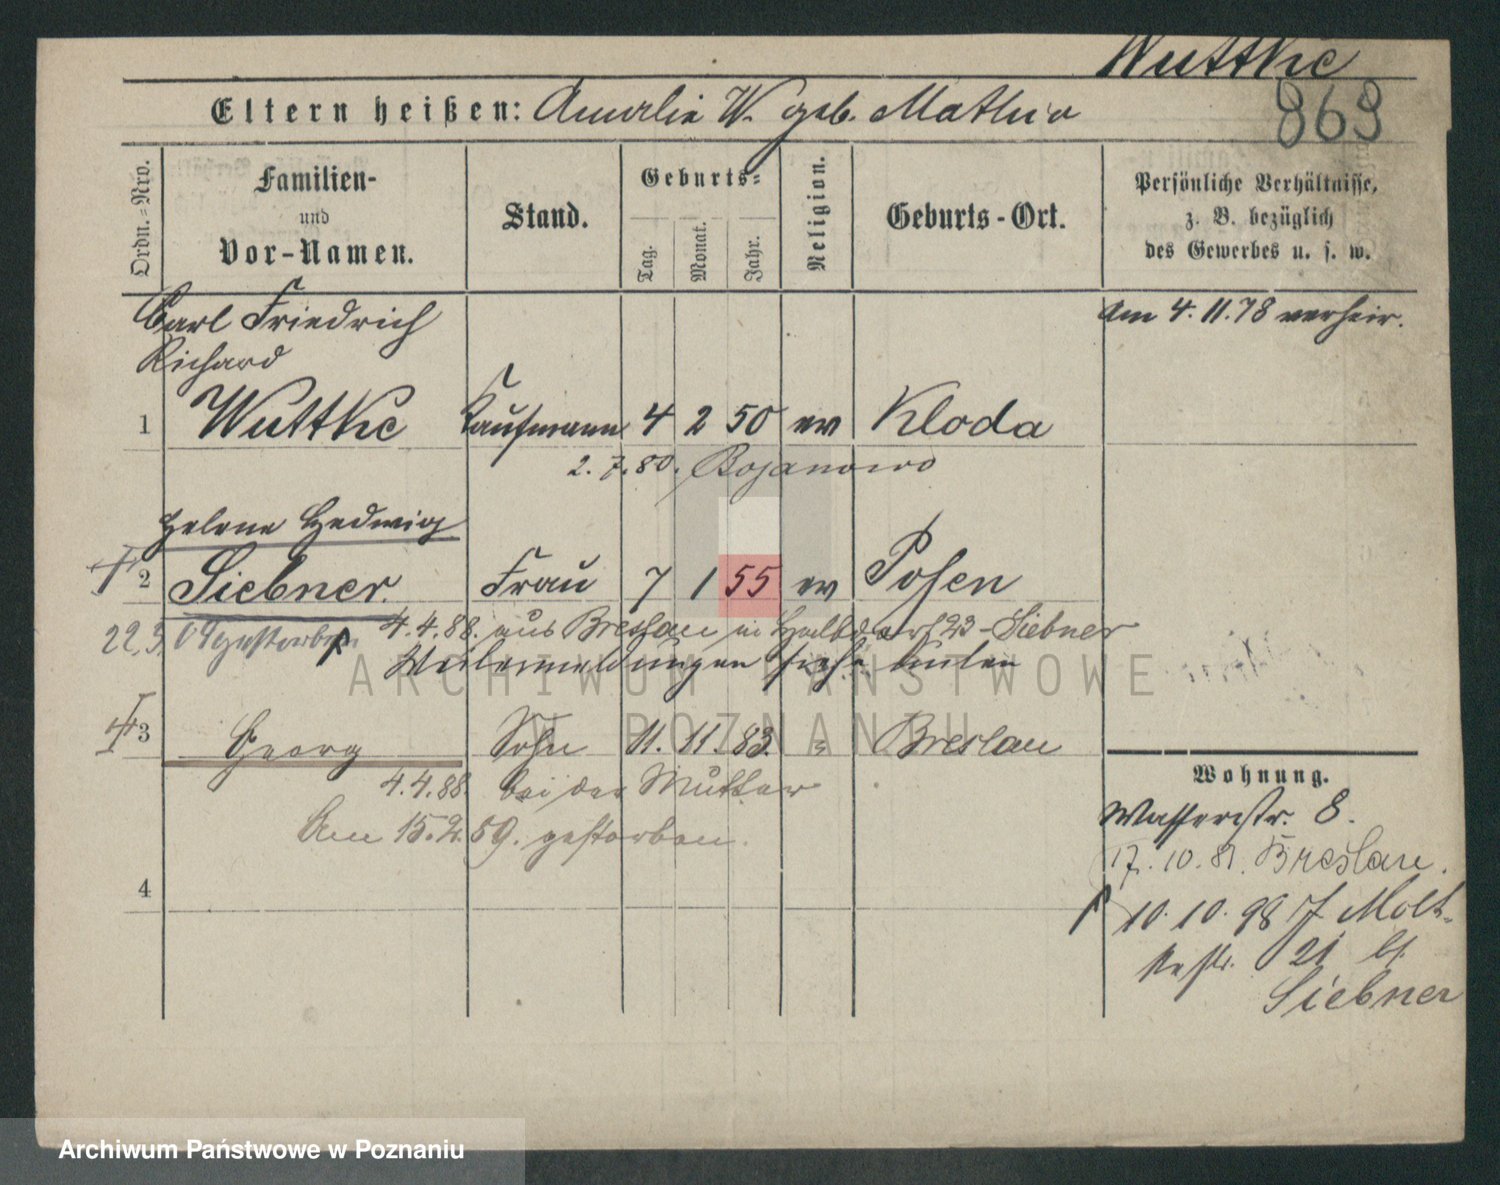 Wuttke
869
Eltern heißen: Amalie W. geb. Mathia
Ordn.=Nro.
Familien-
und
Vor-Namen.
Stand.
Geburts=
Tag.
Monat.
Jahr.
Religion.
Geburts-Ort.
Persönliche Verhältnisse,
z. B. bezüglich
des Gewerbes u. s. w.
Carl Friedrich
Richard
Am 4.11.78 verheir.
1 Wuttke Kaufmann 4 2 50 ev Kloda
2.7.80. Bojanowo
Helene Hedwig
2 Siebner. Frau 7 1 55 ev Posen
22.3. 09 gestorben
4.4.88. aus Breslau in Halbdorf 23 - Siebner
Weitermeldungen siehe unten
ARCHIWUM PAŃSTWOWE
W POZNANIU
3 Georg Sohn 11. 11. 83. = Breslau
4.4.88. bei der Mutter
Am 15.2.59. gestorben.
4
Wohnung.
Wasserstr. 8.
17.10.81. Breslau.
10.10.98 Molt-
kestr. 21 b/.
Siebner
Archiwum Państwowe w Poznaniu